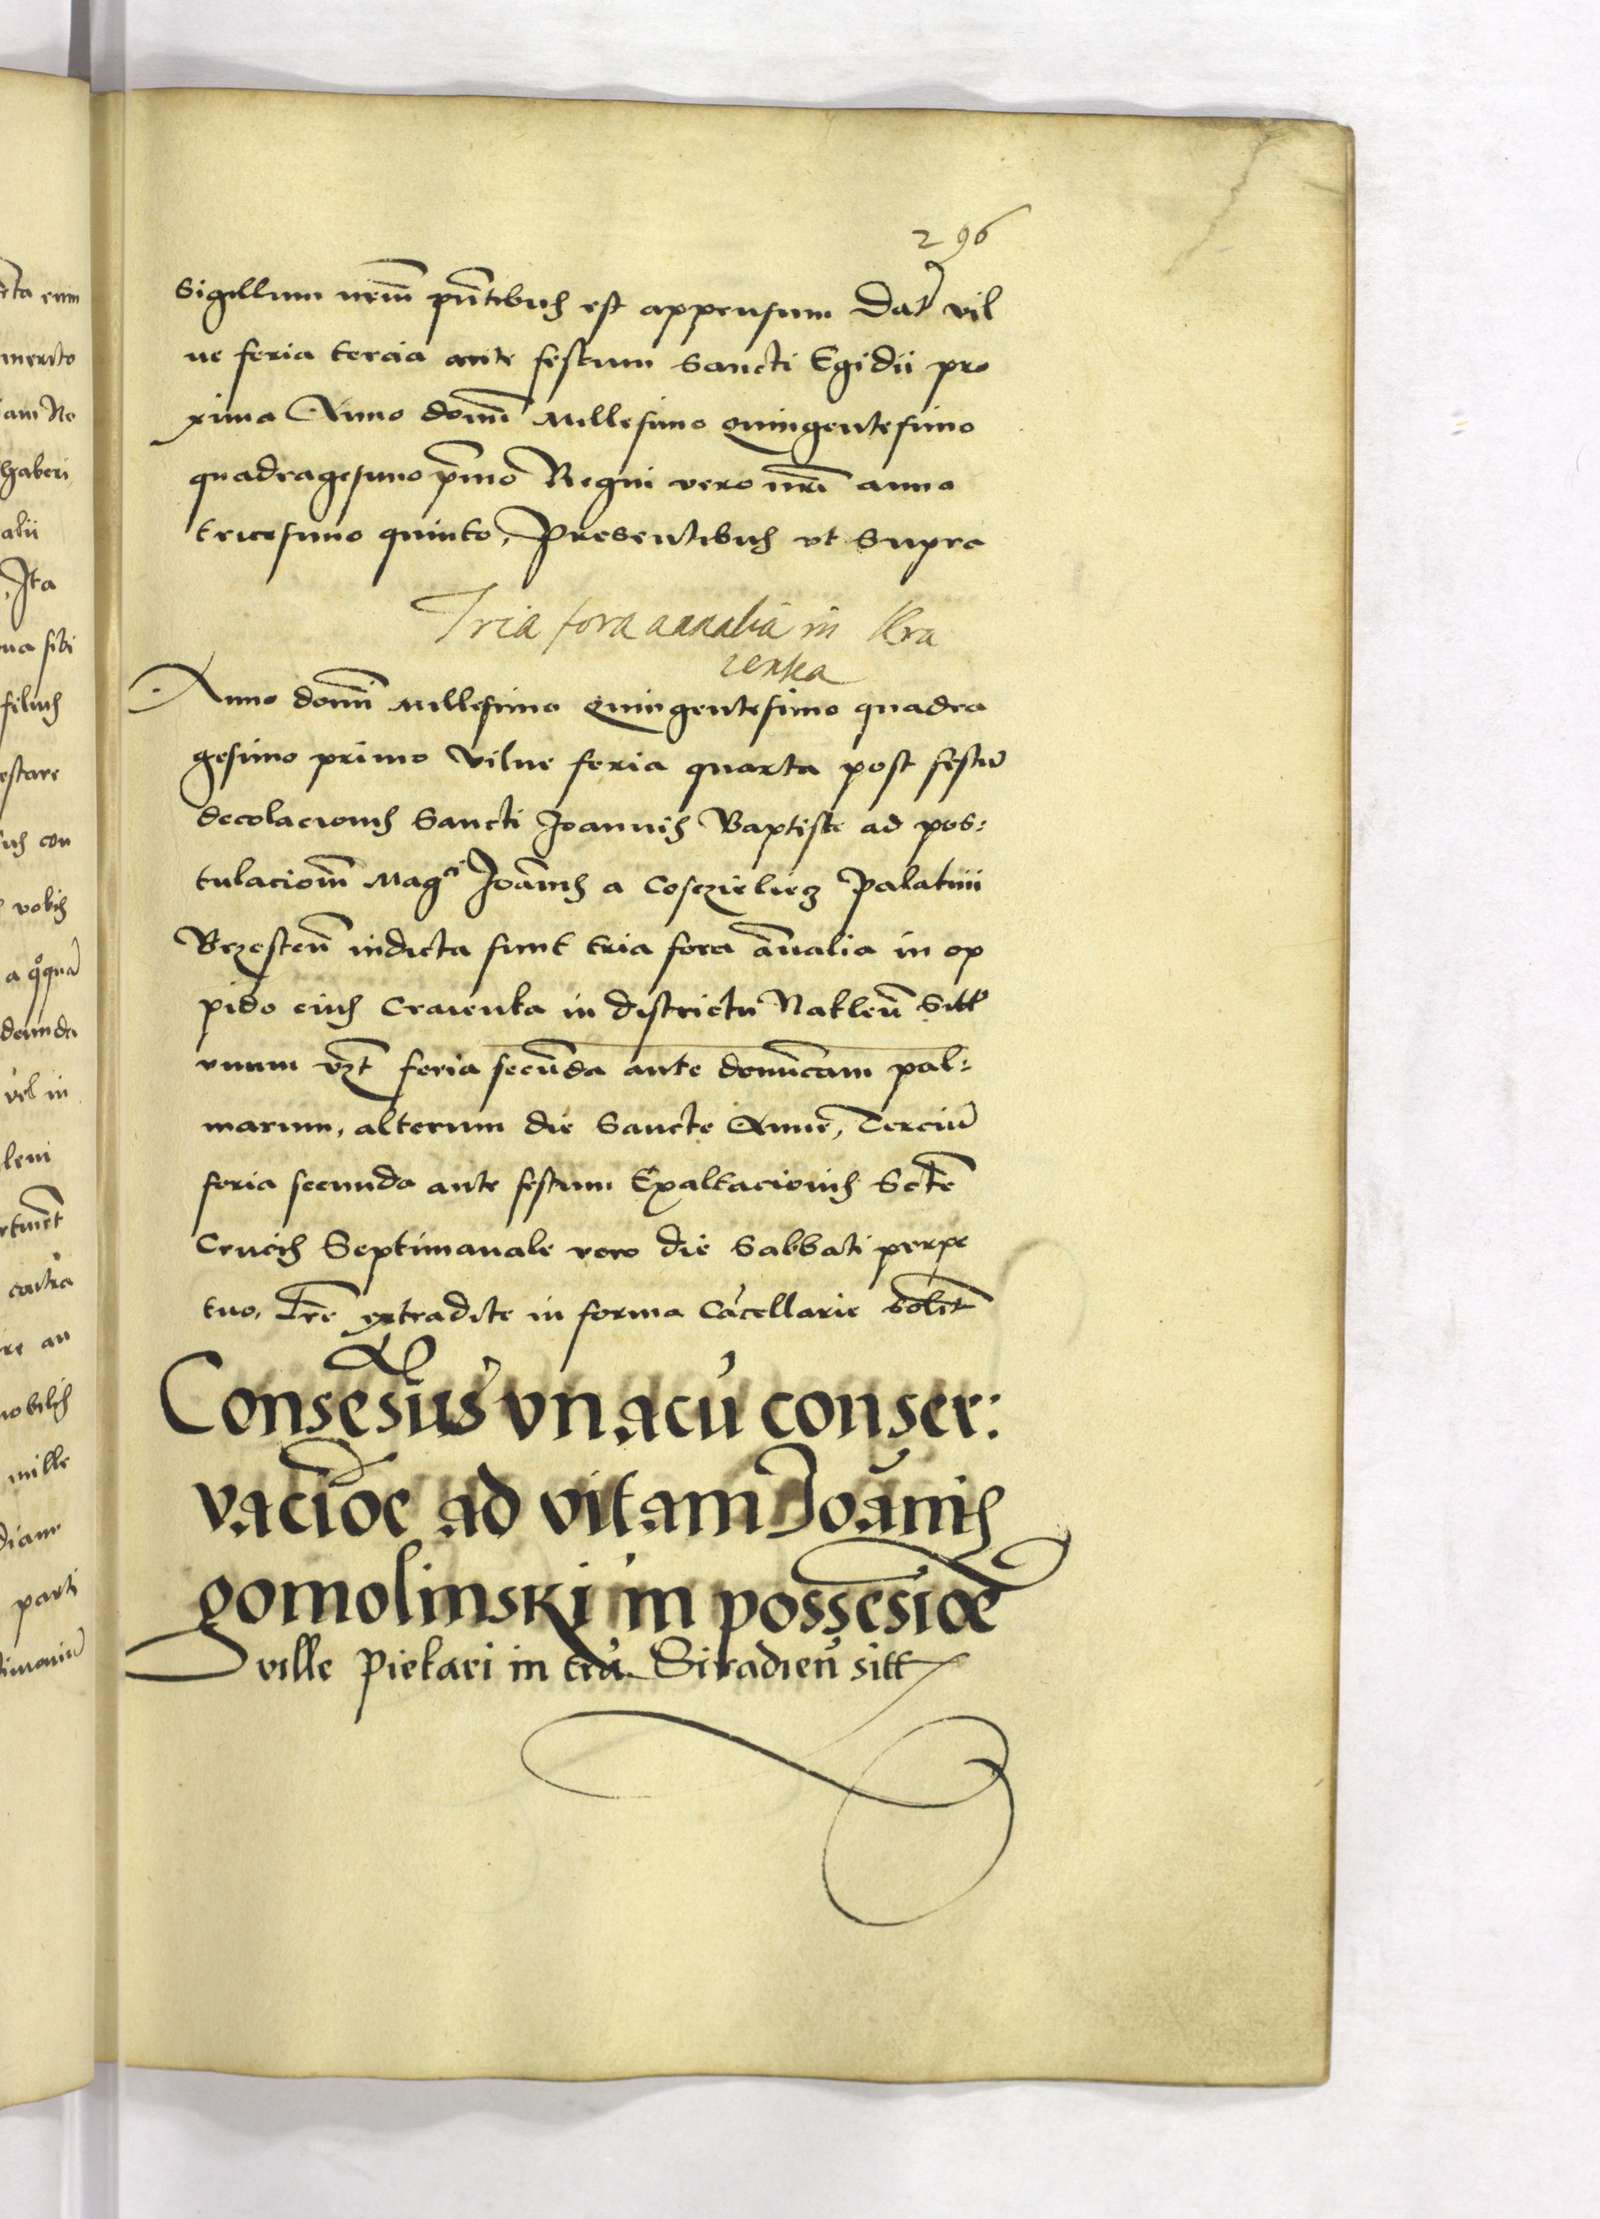 296
Sigillum nrm̃ pñtibus est appensum Dat̃ vil
ne feria tercia ante festum Sancti Egidii pro
xima Anno domĩ Millesimo quingentesimo
quadragesimo p̃mo Regni vero nr̃i anno
tricesimo quinto, Presentibus vt Supra
Tria fora annalia in Kra
ienka
Anno domĩ Millesimo Quingentesimo quadra
gesimo primo Vilne feria quarta post festũ
decolacionis Sancti Joannis Baptiste ad pos:
tulacioem̃ Magci Joãnis a Coszieliecz Palatini
Brzesteñ indicta sunt tria fora ãnualia in op
pido eius Craienka in districtu Nakleñ Sitt
vnum vzt̃ feria secũda ante domĩcam pal:
marum, alterum die Sancte Anne, Terciũ
feria secunda ante festum Exaltacionis Scte̅
Crucis Septimanale vero die Sabbati perpe
tuo, Lr̃e extradite in forma Cãcellarie solit̃
Consẽsus vnacũ conser:
vaciõe ad vitam Joãnis
gomolinski in possesiõe
ville Piekari in tr̃a Siradieñ sitt
ta eum
merito
iam No
haberi
alii
Ita
na sibi
filius
estare
us con
vobis
vel in
contra
re an
nobilis
mille
parti